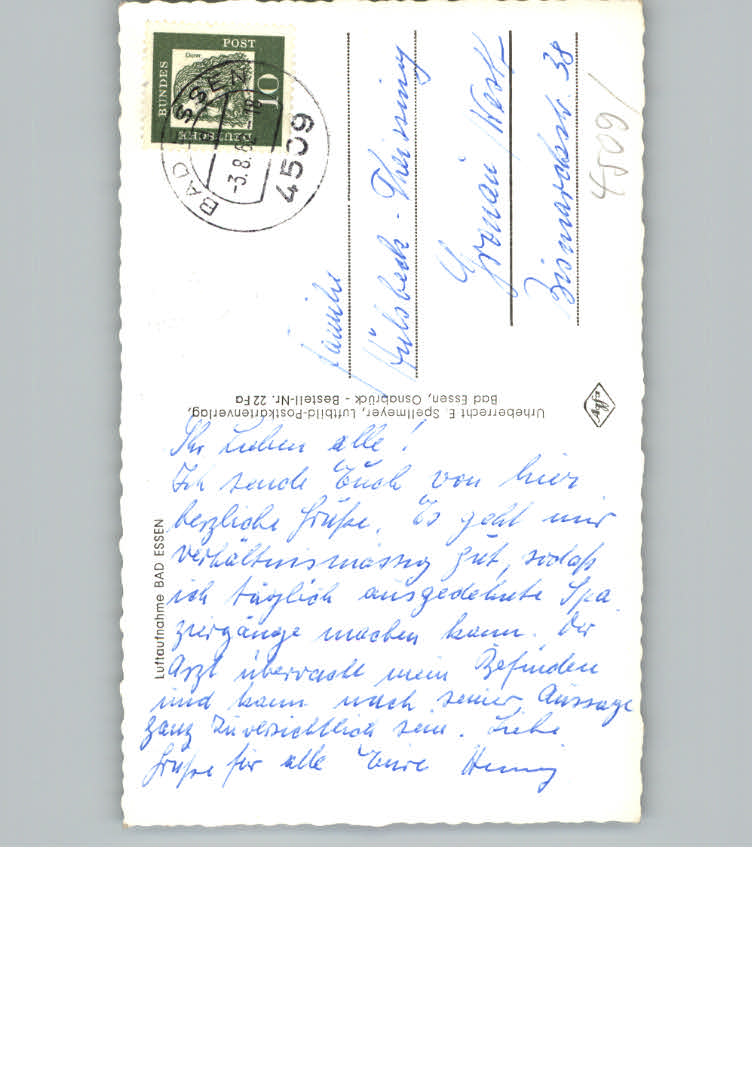 Ihr Lieben alle!
Ich sende Euch von hier
herzliche Grüße. Es geht mir
verhältnismässig gut, sodaß
ich täglich ausgedehnte Spa
ziergänge machen kann. Der
Arzt überwacht mein Befinden
und kann nach seiner Aussage
ganz zuversichtlich sein. Liebe
Grüße für alle Eure
Familie
Hülsbeck-Theissing
Gronau/Westf
Bismarckstr. 38
4509/
Luftaufnahme BAD ESSEN
Urheberrecht E. Spellmeyer, Luftbild-Postkartenverlag,
Bad Essen, Osnabrück - Bestell-Nr. 22 Fa
DEUTSCHE
BUNDES
POST
10
BAD ESSEN
-3.8.6
4509